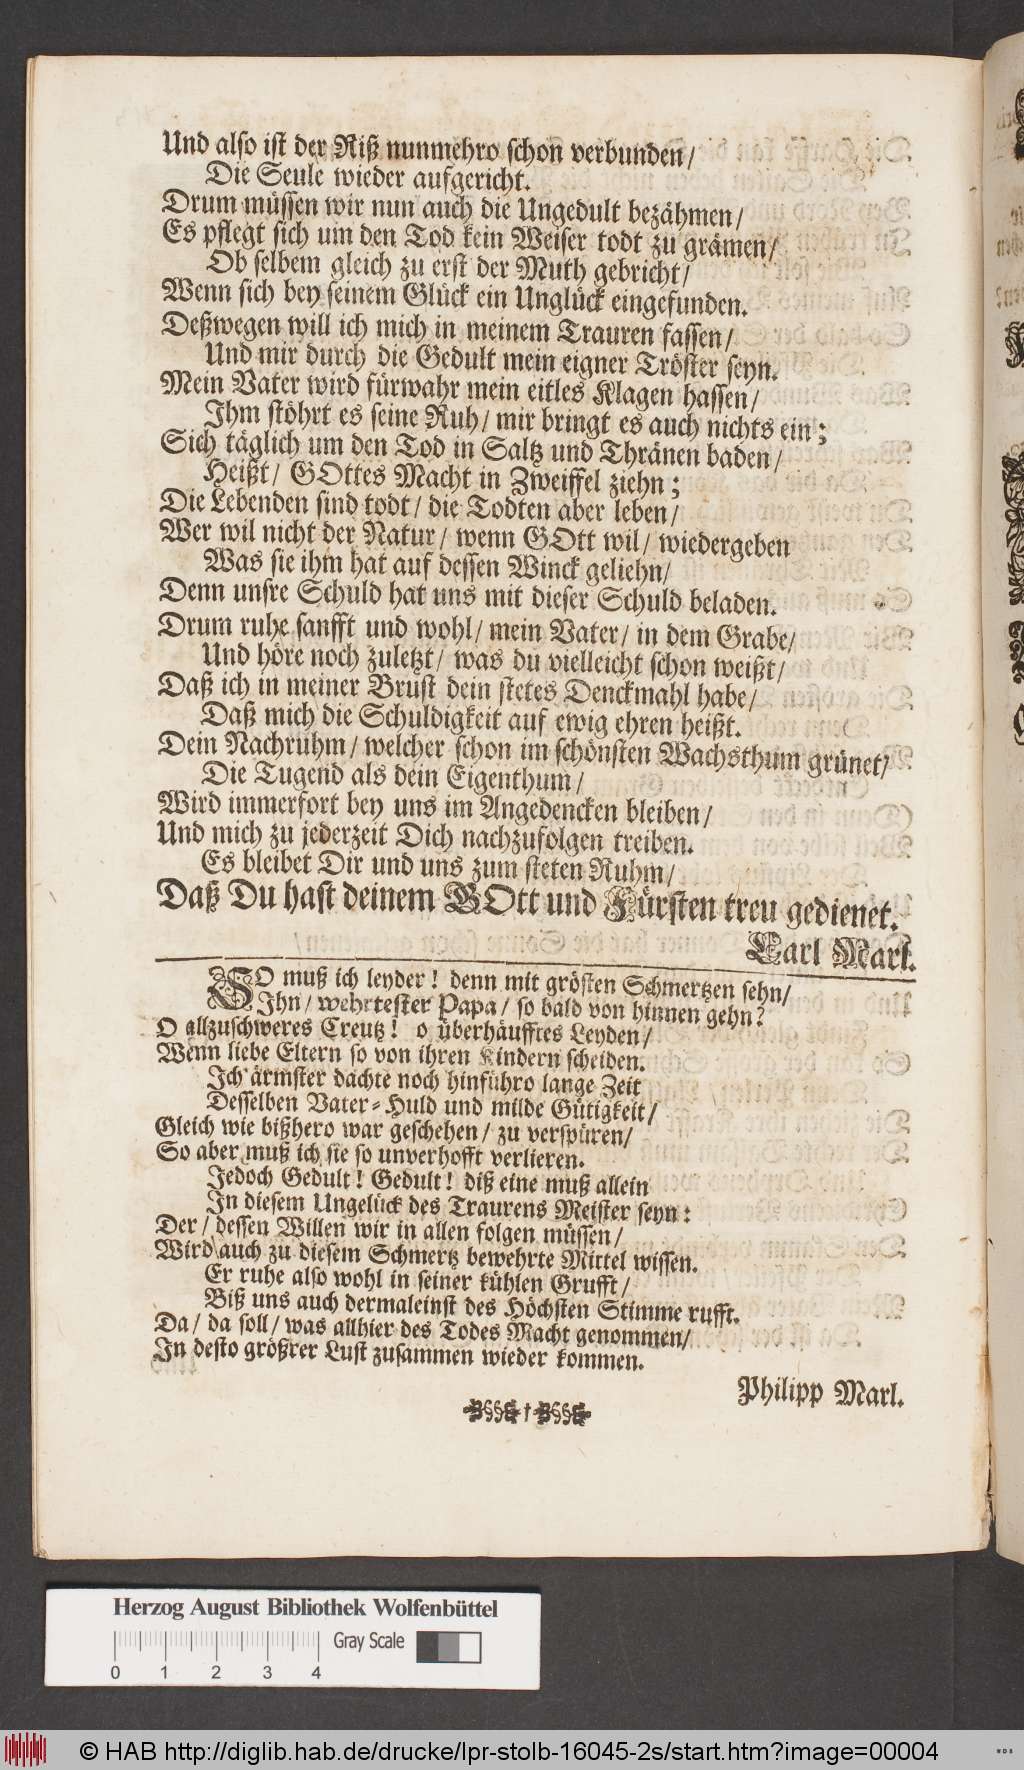 Und also ist der Riß nunmehro schon verbunden/
Die Seule wieder aufgericht.
Drum müssen wir nun auch die Ungedult bezähmen/
Es pflegt sich um den Tod kein Weiser todt zu grämen/
Ob selbem gleich zu erst der Muth gebricht/
Wenn sich bey seinem Glück ein Unglück eingefunden.
Deßwegen will ich mich in meinem Trauren fassen/
Und mir durch die Gedult mein eigner Tröster seyn.
Mein Vater wird fürwahr mein eitles Klagen hassen/
Ihm stöhrt es seine Ruh/ mir bringt es auch nichts ein;
Sich täglich um den Tod in Saltz und Thränen baden/
Heißt/ GOttes Macht in Zweiffel ziehn;
Die Lebenden sind todt/ die Todten aber leben/
Wer wil nicht der Natur/ wenn GOtt wil/ wiedergeben
Was sie ihm hat auf dessen Winck geliehn/
Denn unsre Schuld hat uns mit dieser Schuld beladen.
Drum ruhe sanfft und wohl/ mein Vater/ in dem Grabe/
Und höre noch zuletzt/ was du vielleicht schon weißt/
Daß ich in meiner Brust dein stetes Denckmahl habe/
Daß mich die Schuldigkeit auf ewig ehren heißt.
Dein Nachruhm/ welcher schon im schönsten Wachsthum grünet/
Die Tugend als dein Eigenthum/
Wird immerfort bey uns im Angedencken bleiben/
Und mich zu jederzeit Dich nachzufolgen treiben.
Es bleibet Dir und uns zum steten Ruhm/
Daß Du hast deinem GOtt und Fürsten treu gedienet.
Carl Marl.
SO muß ich leyder! denn mit grösten Schmertzen sehn/
Ihn/ wehrtester Papa/ so bald von hinnen gehn?
O allzuschweres Creutz! o überhäufftes Leyden/
Wenn liebe Eltern so von ihren Kindern scheiden.
Ich ärmster dachte noch hinführo lange Zeit
Desselben Vater-Huld und milde Gütigkeit/
Gleich wie bißhero war geschehen/ zu verspüren/
So aber muß ich sie so unverhofft verlieren.
Jedoch Gedult! Gedult! diß eine muß allein
In diesem Ungelück des Traurens Meister seyn:
Der/ dessen Willen wir in allen folgen müssen/
Wird auch zu diesem Schmertz bewehrte Mittel wissen.
Er ruhe also wohl in seiner kühlen Grufft/
Biß uns auch dermaleinst des Höchsten Stimme rufft.
Da/ da soll/ was allhier des Todes Macht genommen/
In desto größrer Lust zusammen wieder kommen.
Philipp Marl.
Herzog August Bibliothek Wolfenbüttel
Gray Scale
0 1 2 3 4
© HAB http://diglib.hab.de/drucke/lpr-stolb-16045-2s/start.htm?image=00004